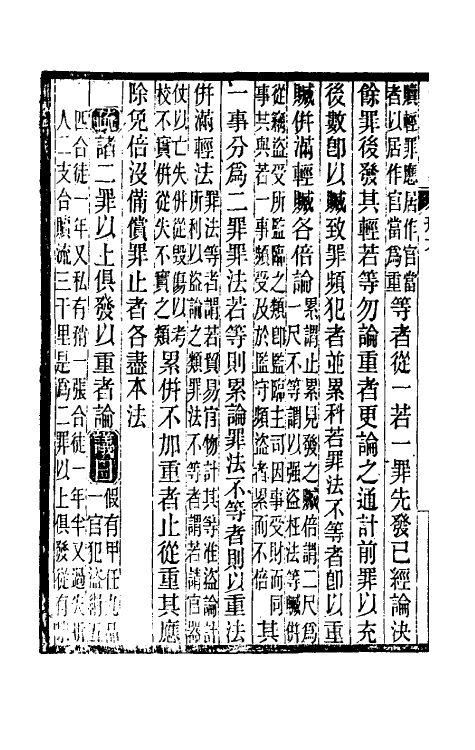 贖輕罪應居作官當
者以居作官當為重
等者從一若一罪先發已經論決
餘罪後發其輕若等勿論重者更論之通計前罪以充
後數即以贓致罪頻犯者並累科若罪法不等者即以重
贓併滿輕贓各倍論
累謂止累見發之贓倍謂二尺為
一尺不等謂以強盜枉法等贓併
從竊盜受所監臨之類即監臨主司因事受財而同
事共與若一事頻受及於監守頻盜者累而不倍
其
一事分為二罪罪法若等則累論罪法不等者則以重法
併滿輕法
罪法等者謂若貿易官物計其等准盜論計
所利以盜論之類罪法不等者謂若請官器
仗以亡失併從毀傷以考
校不實併從失不實之類
累併不加重者止從重其應
除免倍沒備償罪止者各盡本法
疏諸二罪以上俱發以重者論議曰
假有甲任九品
一官犯盜絹五
四合徒一年又私有矟一張合徒一年半又過失折
人二支合贖流三千里是為二罪以上俱發從有